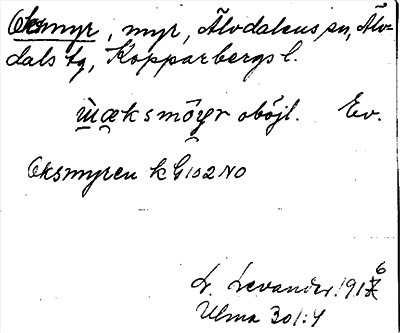 Oksmyr, myr, Älvdalens sn, Älv-
dals tg, Kopparbergs l.
ùæksmöyr oböjl. Ev.
Oksmyren k G102NO
L. Levander 1916
Ulma 301:4